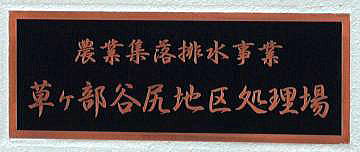 農業集落排水事業
草ヶ部谷尻地区処理場